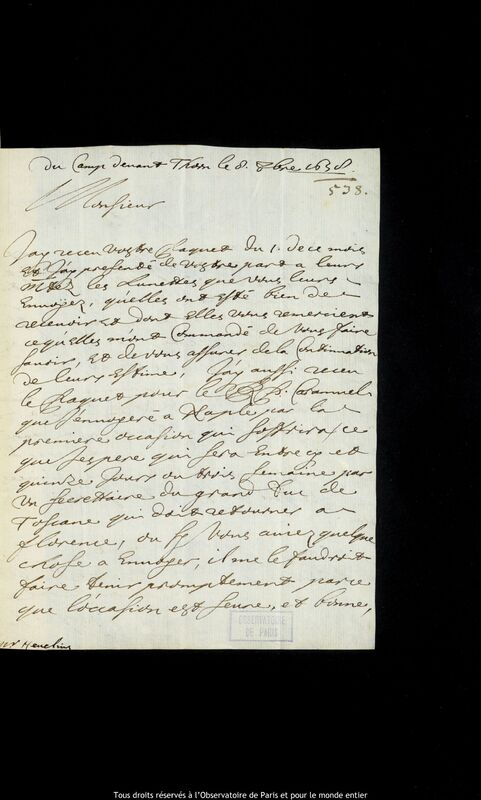 Du Camp devant Thorn le 8. 8bre 1658.
538.
Monsieur
J'ay receu vostre Paquet du 1. de ce mois
Et J'ay presenté de vostre part a leurs
Mtez les Lunettes que vous leurs
Envoyiez, quelles ont esté bien de
recevoir et dont Elles vous remercient
ce qu'elles m'ont Commandé de vous faire
savoir, Et de vous assurer de la Continuation
de leurs Estime, J'ay aussi receu
le Paquet pour le P. Caramuel
que J'envoyeré a Naple par la
premiere occasion qui s'offrira, ce
que J'espere qui sera Entre cy et
quinze Jours ou trois semaine par
un Secrettaire du grand Duc de
Toscane qui doit retourner a
florence, ou sy vous aviez quelque
chose a Envoyer, il me le faudroit
faire tenir promptement parce
que l'occasion est seure, et bonne,
Hevelius
OBSERVATOIRE
DE PARIS
Tous droits réservés à l'Observatoire de Paris et pour le monde entier